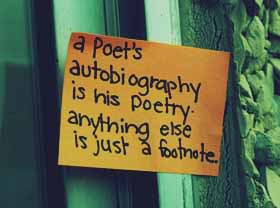 a Poet's
autobiography
is his Poetry.
anything else
is just a footnote.